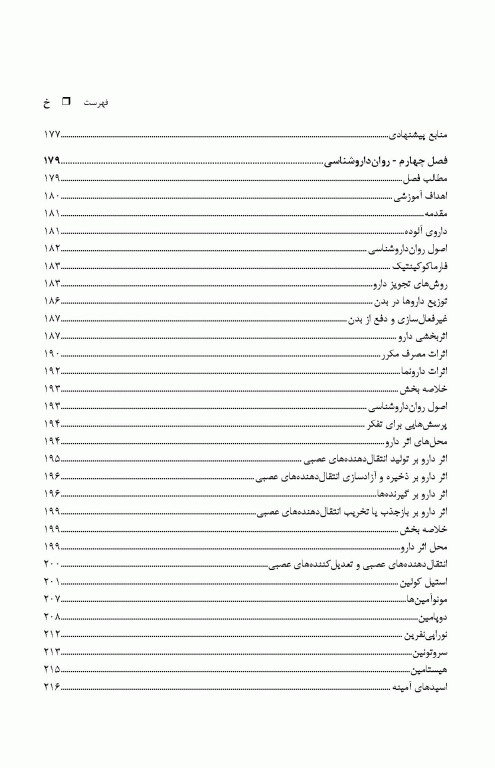 فهرست ❐ خ
منابع پیشنهادی ۱۷۷
فصل چهارم - روان‌داروشناسی ۱۷۹
مطالب فصل ۱۷۹
اهداف آموزشی ۱۸۰
مقدمه ۱۸۱
داروی آلوده ۱۸۱
اصول روان‌داروشناسی ۱۸۲
فارماکوکینتیک ۱۸۳
روش‌های تجویز دارو ۱۸۳
توزیع داروها در بدن ۱۸۶
غیرفعال‌سازی و دفع از بدن ۱۸۷
اثربخشی دارو ۱۸۷
اثرات مصرف مکرر ۱۹۰
اثرات دارونما ۱۹۲
خلاصه بخش ۱۹۳
اصول روان‌داروشناسی ۱۹۳
پرسش‌هایی برای تفکر ۱۹۴
محل‌های اثر دارو ۱۹۴
اثر دارو بر تولید انتقال‌دهنده‌های عصبی ۱۹۵
اثر دارو بر ذخیره و آزادسازی انتقال‌دهنده‌های عصبی ۱۹۶
اثر دارو بر گیرنده‌ها ۱۹۶
اثر دارو بر بازجذب یا تخریب انتقال‌دهنده‌های عصبی ۱۹۹
خلاصه بخش ۱۹۹
محل اثر دارو ۱۹۹
انتقال‌دهنده‌های عصبی و تعدیل‌کننده‌های عصبی ۲۰۰
استیل کولین ۲۰۱
مونوآمین‌ها ۲۰۷
دوپامین ۲۰۸
نوراپی‌نفرین ۲۱۲
سروتونین ۲۱۳
هیستامین ۲۱۵
اسیدهای آمینه ۲۱۶